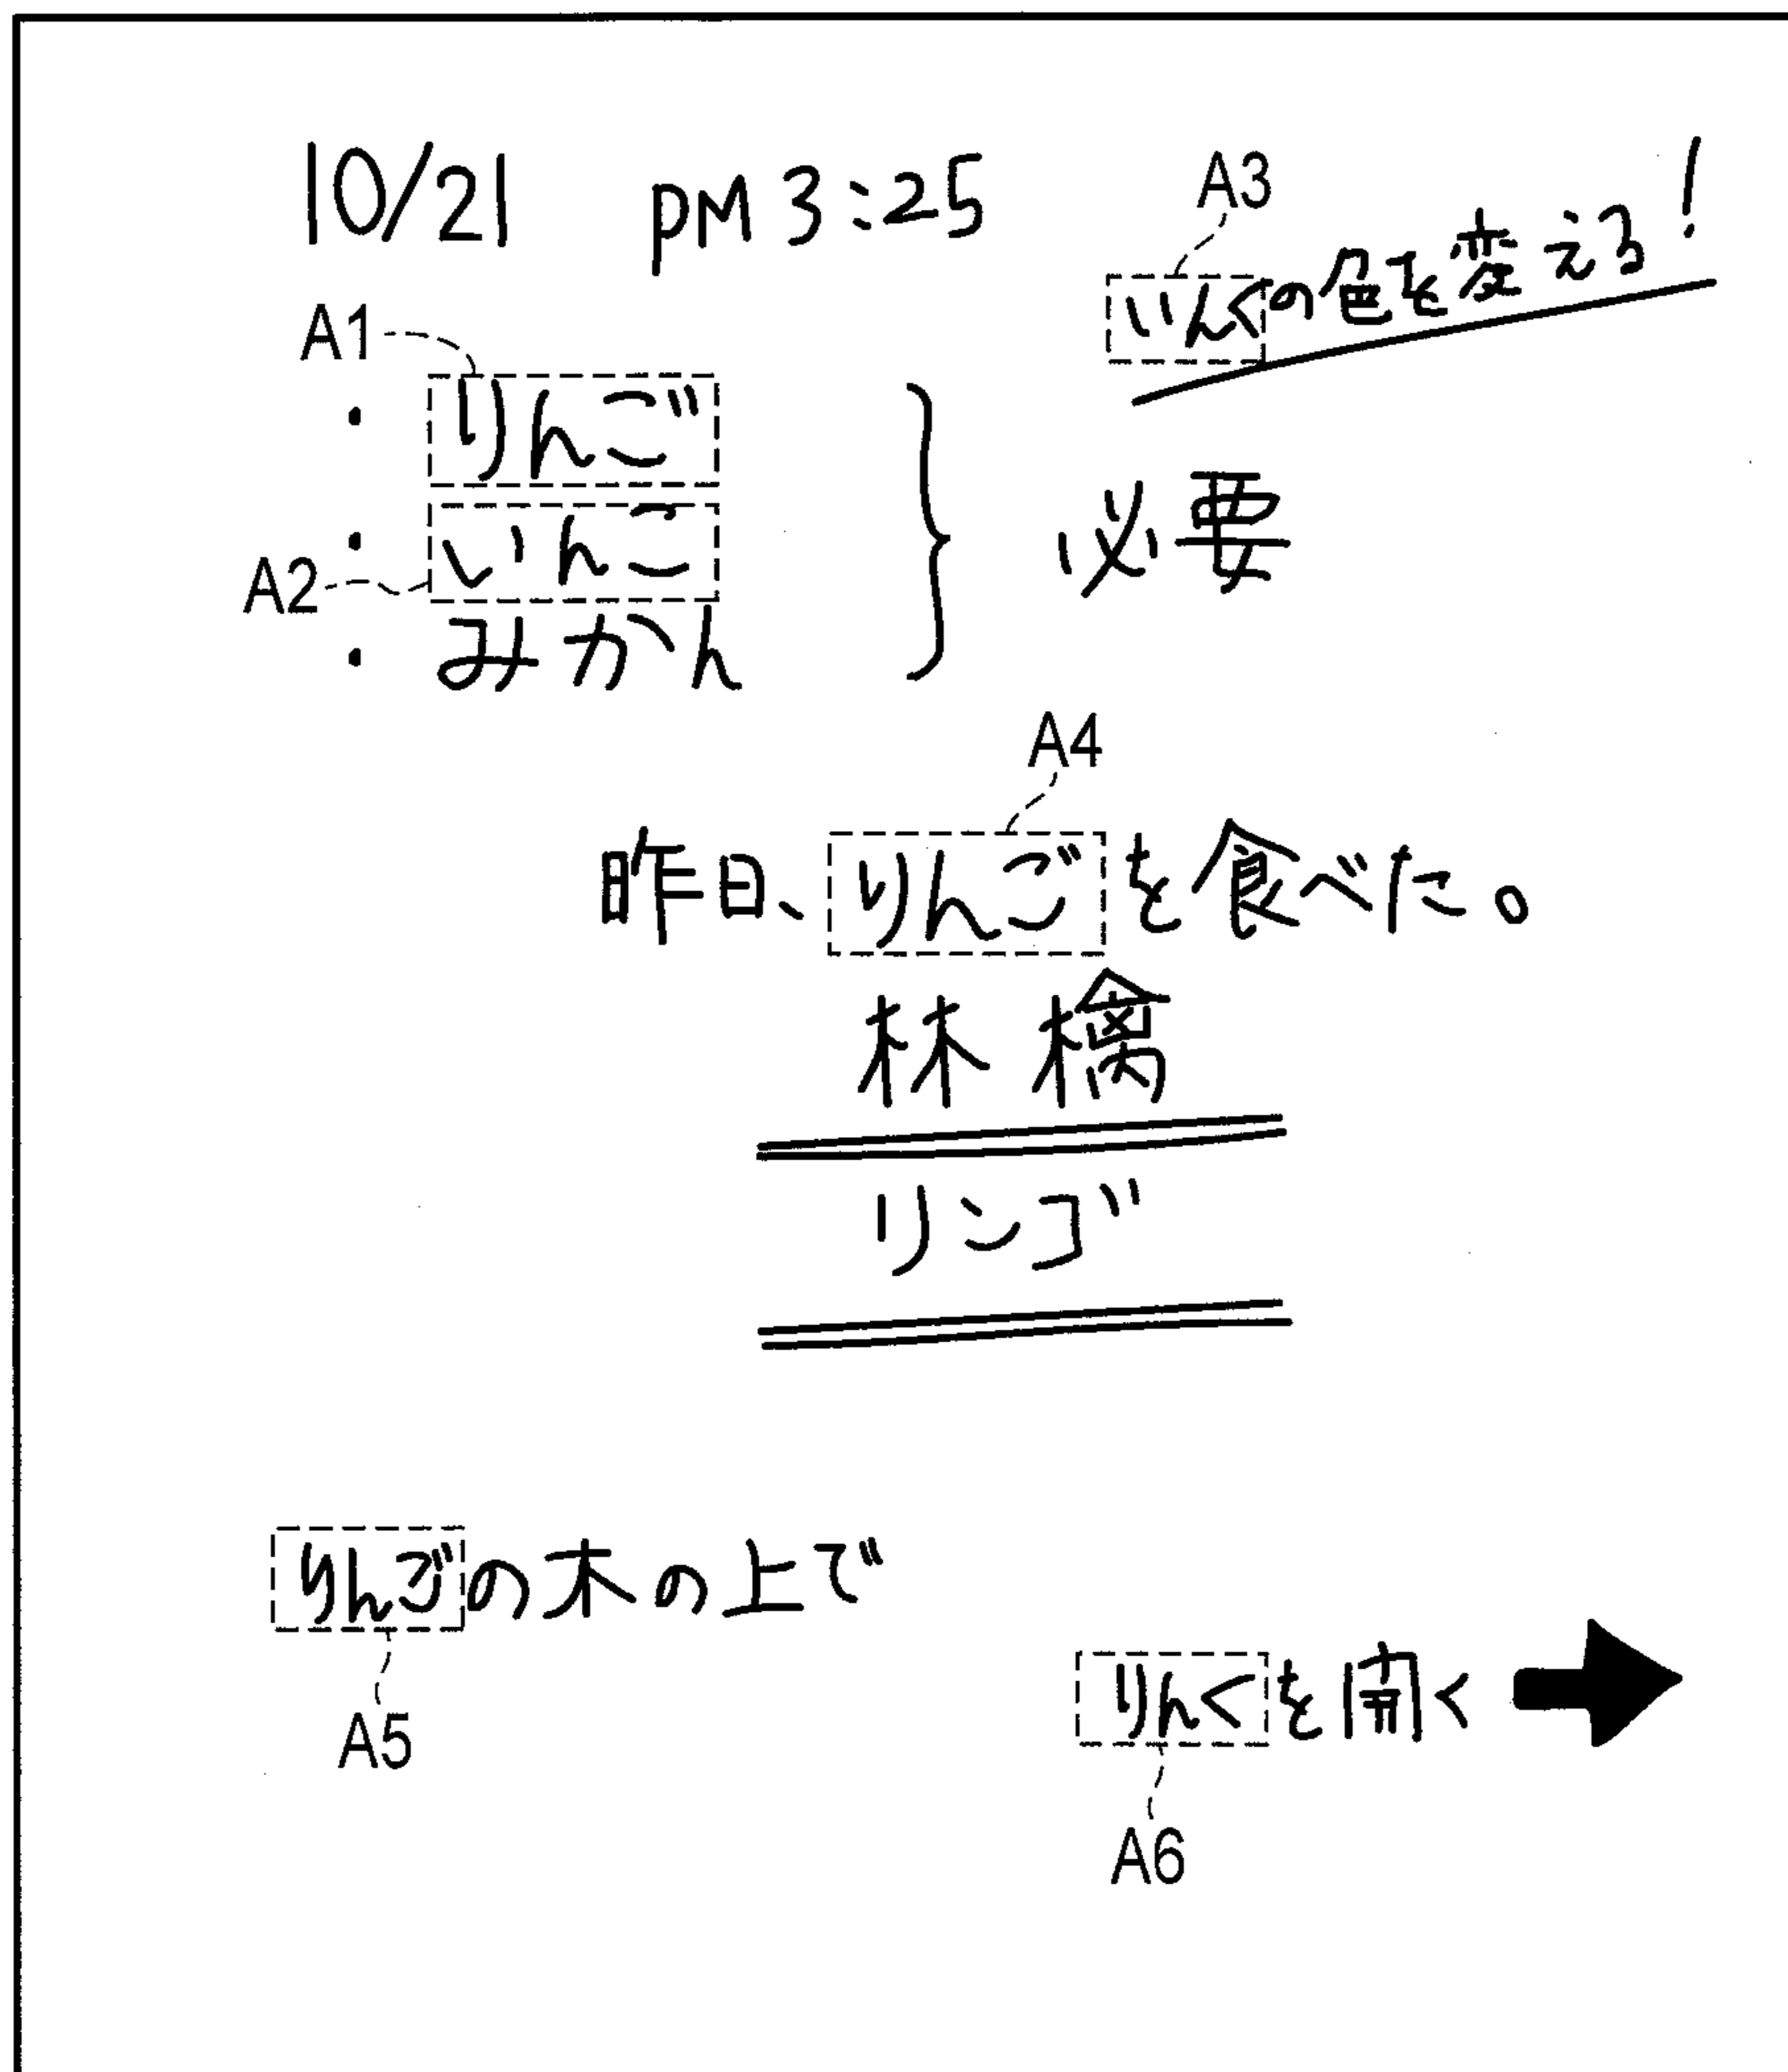 10/21 PM 3:25
A3
いんくの色を変える!
A1
・りんご
・いんこ
A2
・みかん
必要
A4
昨日、りんごを食べた。
林檎
リンゴ
りんごの木の上で
A5
りんくを開く
A6